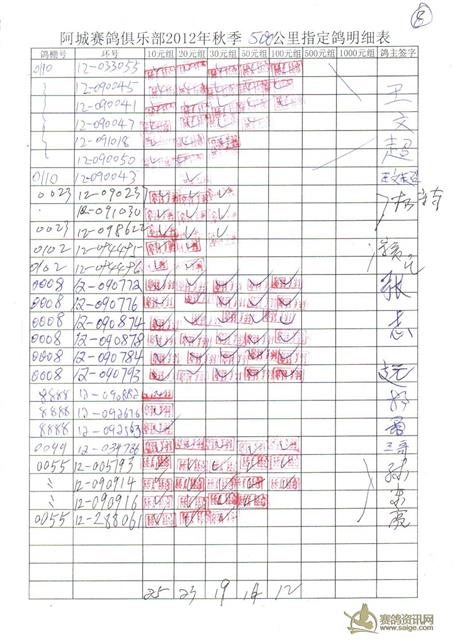 8
阿城赛鸽俱乐部2012年秋季 500公里指定鸽明细表
鸽棚号 环号 10元组 20元组 30元组 50元组 100元组 500元组 1000元组 鸽主签字
0110 12-033055
12-090045 王
12-090041 文
12-090047
12-091018 超
12-090050
0110 12-090043 王文超
0023 12-090023
12-091030
0023 12-098622
0102
0102
0008 12-090772 张
0008 12-090776
0008 12-090874 志
0008 12-090878
0008 12-090784 远
0008 12-090793
8888 12-090882
8888 12-092676
8888 12-092163
0044 12-034726
0055 12-005793 孙
〃 12-090914
〃 12-090916
0055 12-288061 亮
25 23 19 14 12
赛鸽资讯网
www.saige.com